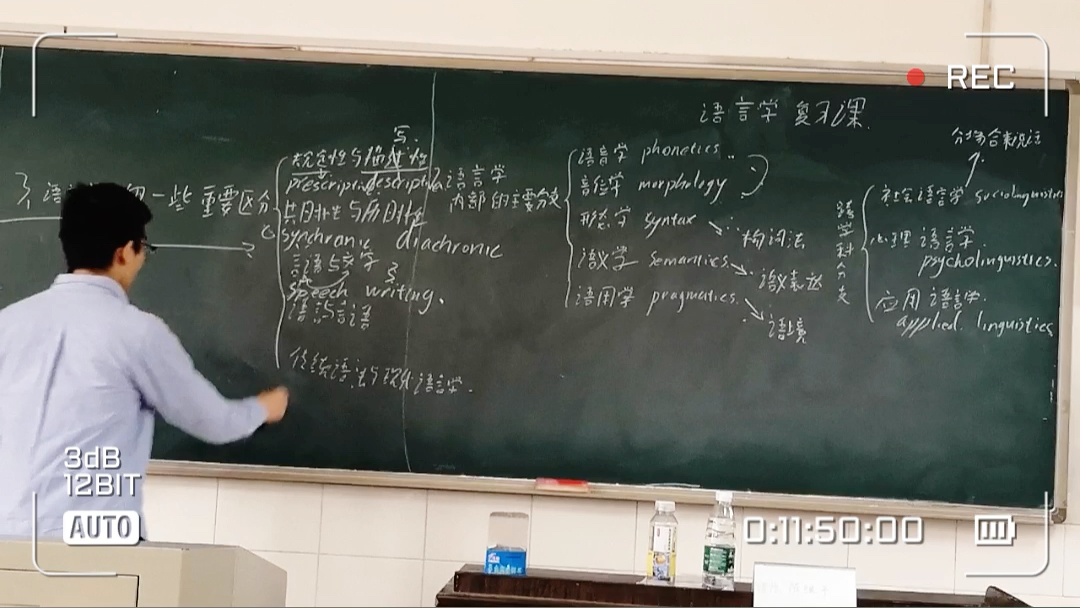 REC
语言学 复习课.
分场合来说话
写.
规定性与描述性
prescriptive descriptive
3. 语 一些重要区分
共时性与历时性
synchronic diachronic
言语与文字
speech writing.
语言与言语
传统语法与现代语言学.
2. 语言学
内部的主要分支
语音学 phonetics
音位学 morphology
形态学 syntax
构词法
语义学 semantics
语义表达
语用学 pragmatics
语境
跨学科分支
社会语言学 sociolinguistics
心理语言学.
psycholinguistics.
应用语言学.
applied linguistics
3dB
12BIT
AUTO
0:11:50:00